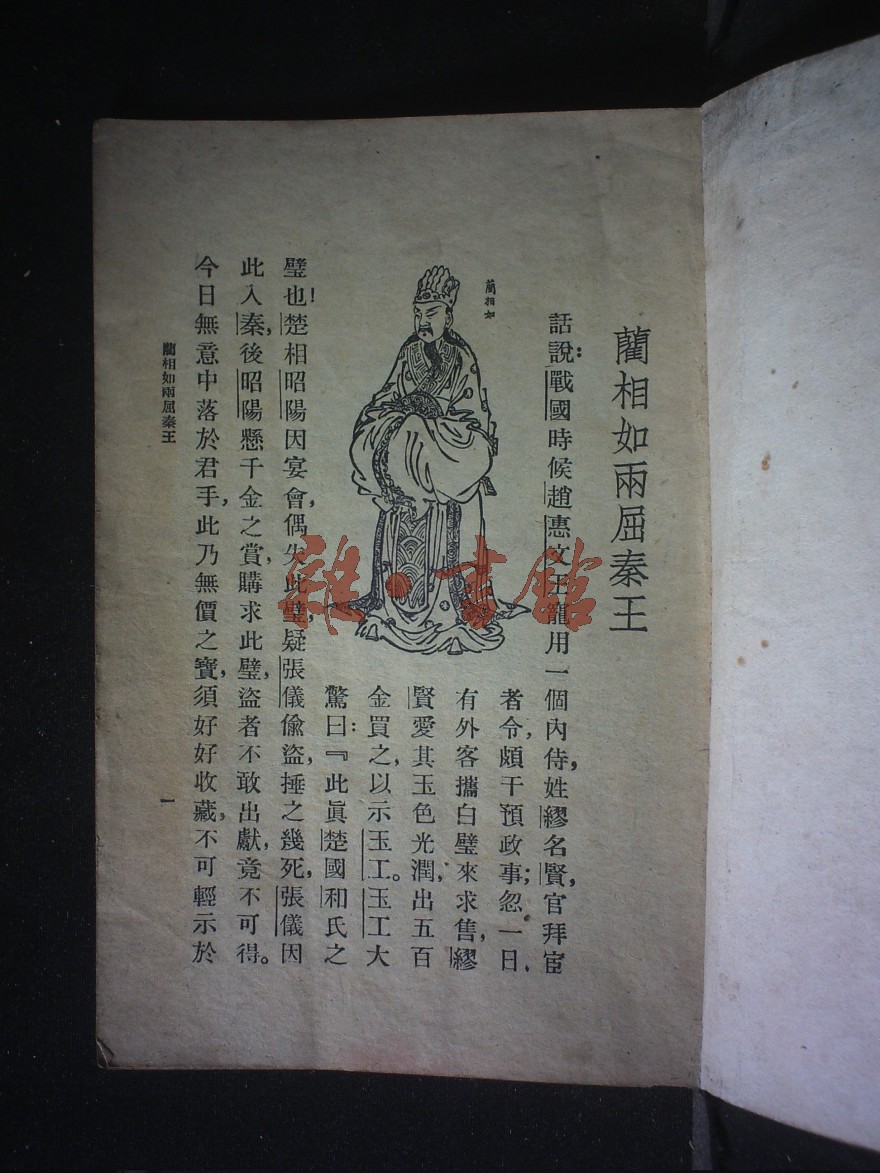 藺相如兩屈秦王
話說：戰國時候趙惠文王寵用一個內侍，姓繆名賢，官拜宦
者令，頗干預政事；忽一日，
有外客攜白璧來求售，繆
賢愛其玉色光潤，出五百
金買之，以示玉工。玉工大
驚曰：『此眞楚國和氏之
藺相如
璧也！楚相昭陽因宴會，偶失此璧，疑張儀偸盜，捶之幾死，張儀因
此入秦，後昭陽懸千金之賞，購求此璧，盜者不敢出獻，竟不可得。
今日無意中落於君手，此乃無價之寶，須好好收藏，不可輕示於
藺相如兩屈秦王
一
雜·書館